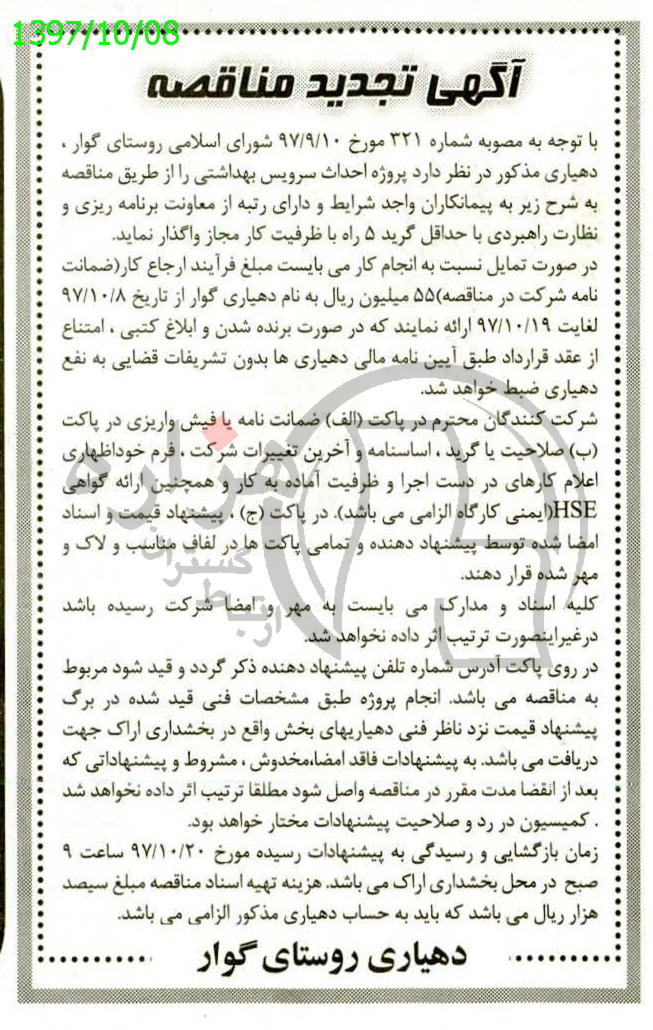 1397/10/08
آگهی تجدید مناقصه
با توجه به مصوبه شماره ۳۲۱ مورخ ۹۷/۹/۱۰ شورای اسلامی روستای گوار ،
دهیاری مذکور در نظر دارد پروژه احداث سرویس بهداشتی را از طریق مناقصه
به شرح زیر به پیمانکاران واجد شرایط و دارای رتبه از معاونت برنامه ریزی و
نظارت راهبردی با حداقل گرید ۵ راه با ظرفیت کار مجاز واگذار نماید.
در صورت تمایل نسبت به انجام کار می بایست مبلغ فرآیند ارجاع کار(ضمانت
نامه شرکت در مناقصه)۵۵ میلیون ریال به نام دهیاری گوار از تاریخ ۹۷/۱۰/۸
لغایت ۹۷/۱۰/۱۹ ارائه نمایند که در صورت برنده شدن و ابلاغ کتبی ، امتناع
از عقد قرارداد طبق آیین نامه مالی دهیاری ها بدون تشریفات قضایی به نفع
دهیاری ضبط خواهد شد.
شرکت کنندگان محترم در پاکت (الف) ضمانت نامه یا فیش واریزی در پاکت
(ب) صلاحیت یا گرید ، اساسنامه و آخرین تغییرات شرکت ، فرم خوداظهاری
اعلام کارهای در دست اجرا و ظرفیت آماده به کار و همچنین ارائه گواهی
HSE(ایمنی کارگاه الزامی می باشد). در پاکت (ج) ، پیشنهاد قیمت و اسناد
امضا شده توسط پیشنهاد دهنده و تمامی پاکت ها در لفاف مناسب و لاک و
مهر شده قرار دهند.
کلیه اسناد و مدارک می بایست به مهر و امضا شرکت رسیده باشد
درغیراینصورت ترتیب اثر داده نخواهد شد.
در روی پاکت آدرس شماره تلفن پیشنهاد دهنده ذکر گردد و قید شود مربوط
به مناقصه می باشد. انجام پروژه طبق مشخصات فنی قید شده در برگ
پیشنهاد قیمت نزد ناظر فنی دهیاریهای بخش واقع در بخشداری اراک جهت
دریافت می باشد. به پیشنهادات فاقد امضا،مخدوش ، مشروط و پیشنهاداتی که
بعد از انقضا مدت مقرر در مناقصه واصل شود مطلقا ترتیب اثر داده نخواهد شد
. کمیسیون در رد و صلاحیت پیشنهادات مختار خواهد بود.
زمان بازگشایی و رسیدگی به پیشنهادات رسیده مورخ ۹۷/۱۰/۲۰ ساعت ۹
صبح در محل بخشداری اراک می باشد. هزینه تهیه اسناد مناقصه مبلغ سیصد
هزار ریال می باشد که باید به حساب دهیاری مذکور الزامی می باشد.
دهیاری روستای گوار
هزاره